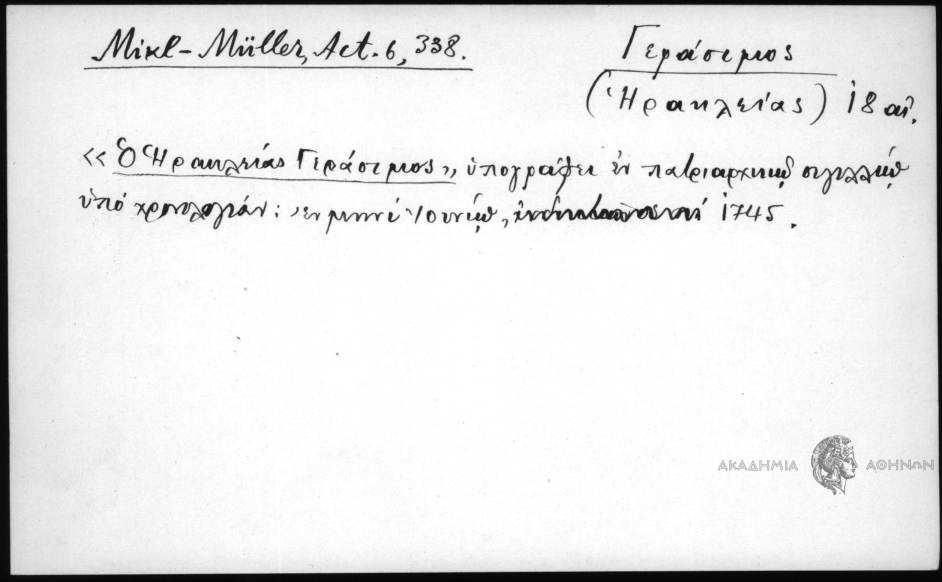 Mikl-Müller, Act. 6, 338.
Γεράσιμος
(Ἡρακλείας) 18 αἰ.
«Ὁ Ἡρακλείας Γεράσιμος», ὑπογράφει ἐν πατριαρχικῷ σιγιλλίῳ
ὑπό χρονολογίαν: «ἐν μηνί Ἰουνίῳ, 1745.
ΑΚΑΔΗΜΙΑ ΑΘΗΝΩΝ